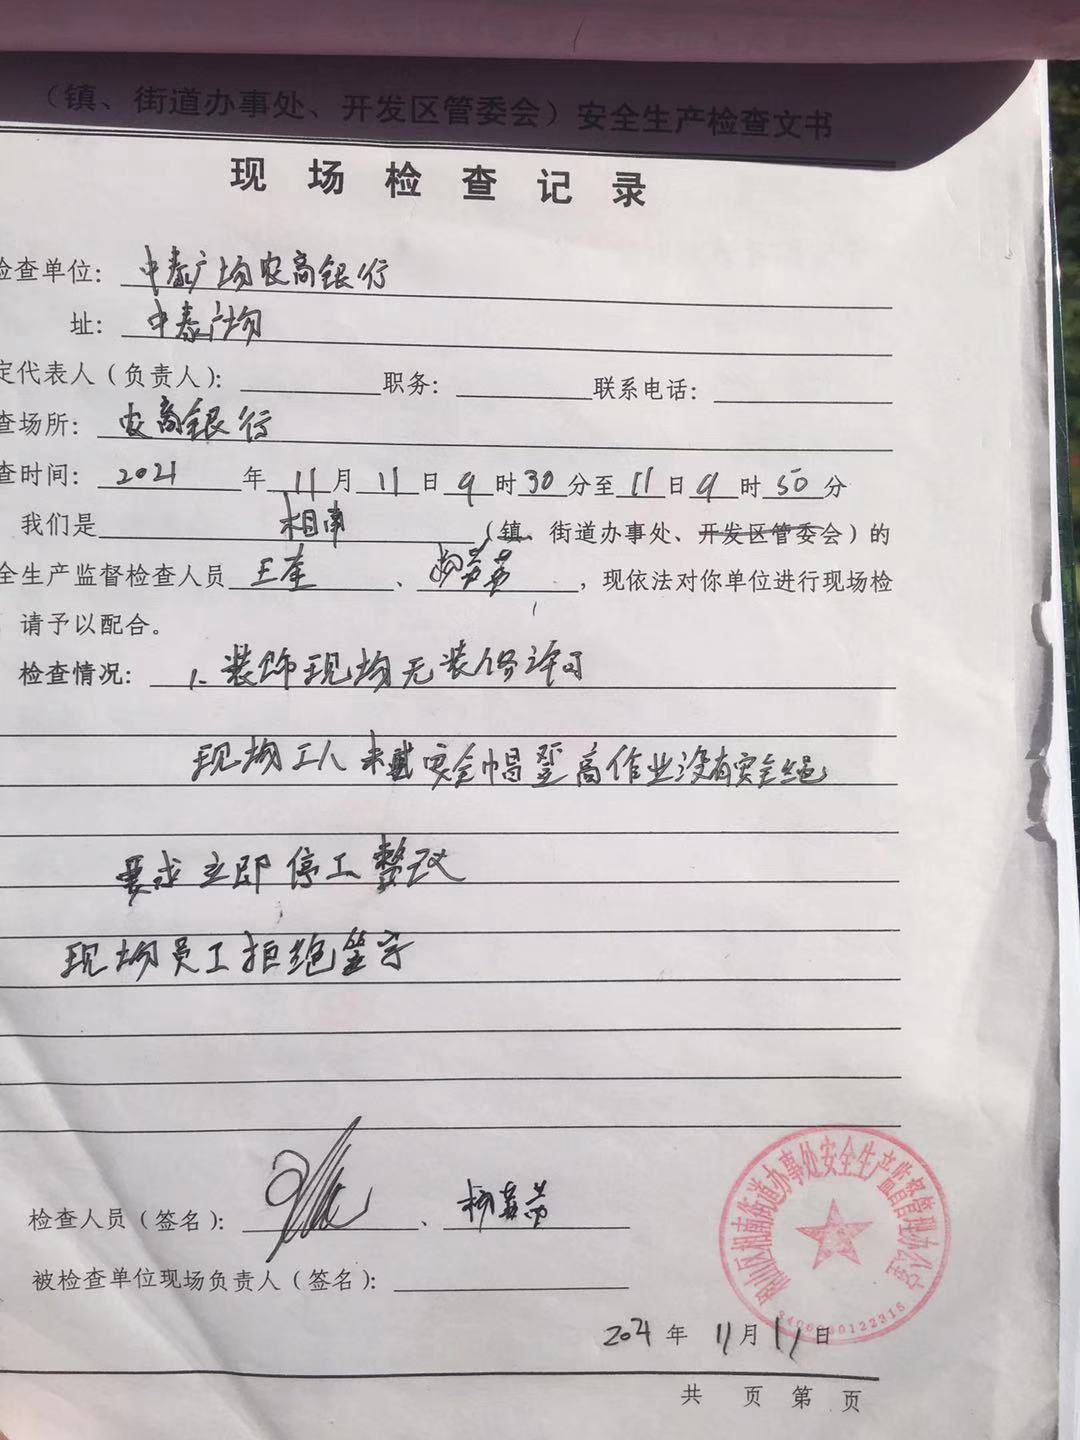 （镇、街道办事处、开发区管委会）安全生产检查文书
现场检查记录
检查单位：中泰广场农商银行
址：中泰广场
定代表人（负责人）：　职务：　联系电话：
查场所：农商银行
查时间：2021年11月11日9时30分至11日9时50分
我们是相南（镇、街道办事处、开发区管委会）的
全生产监督检查人员王奎、，现依法对你单位进行现场检
请予以配合。
检查情况：1、装饰现场无装修许可
现场工人未戴安全帽登高作业没有安全绳
要求立即停工整改
现场员工拒绝签字
检查人员（签名）：、
被检查单位现场负责人（签名）：
山区相南街道办事处安全生产监督管理办公室
2021年11月11日
共　页第　页